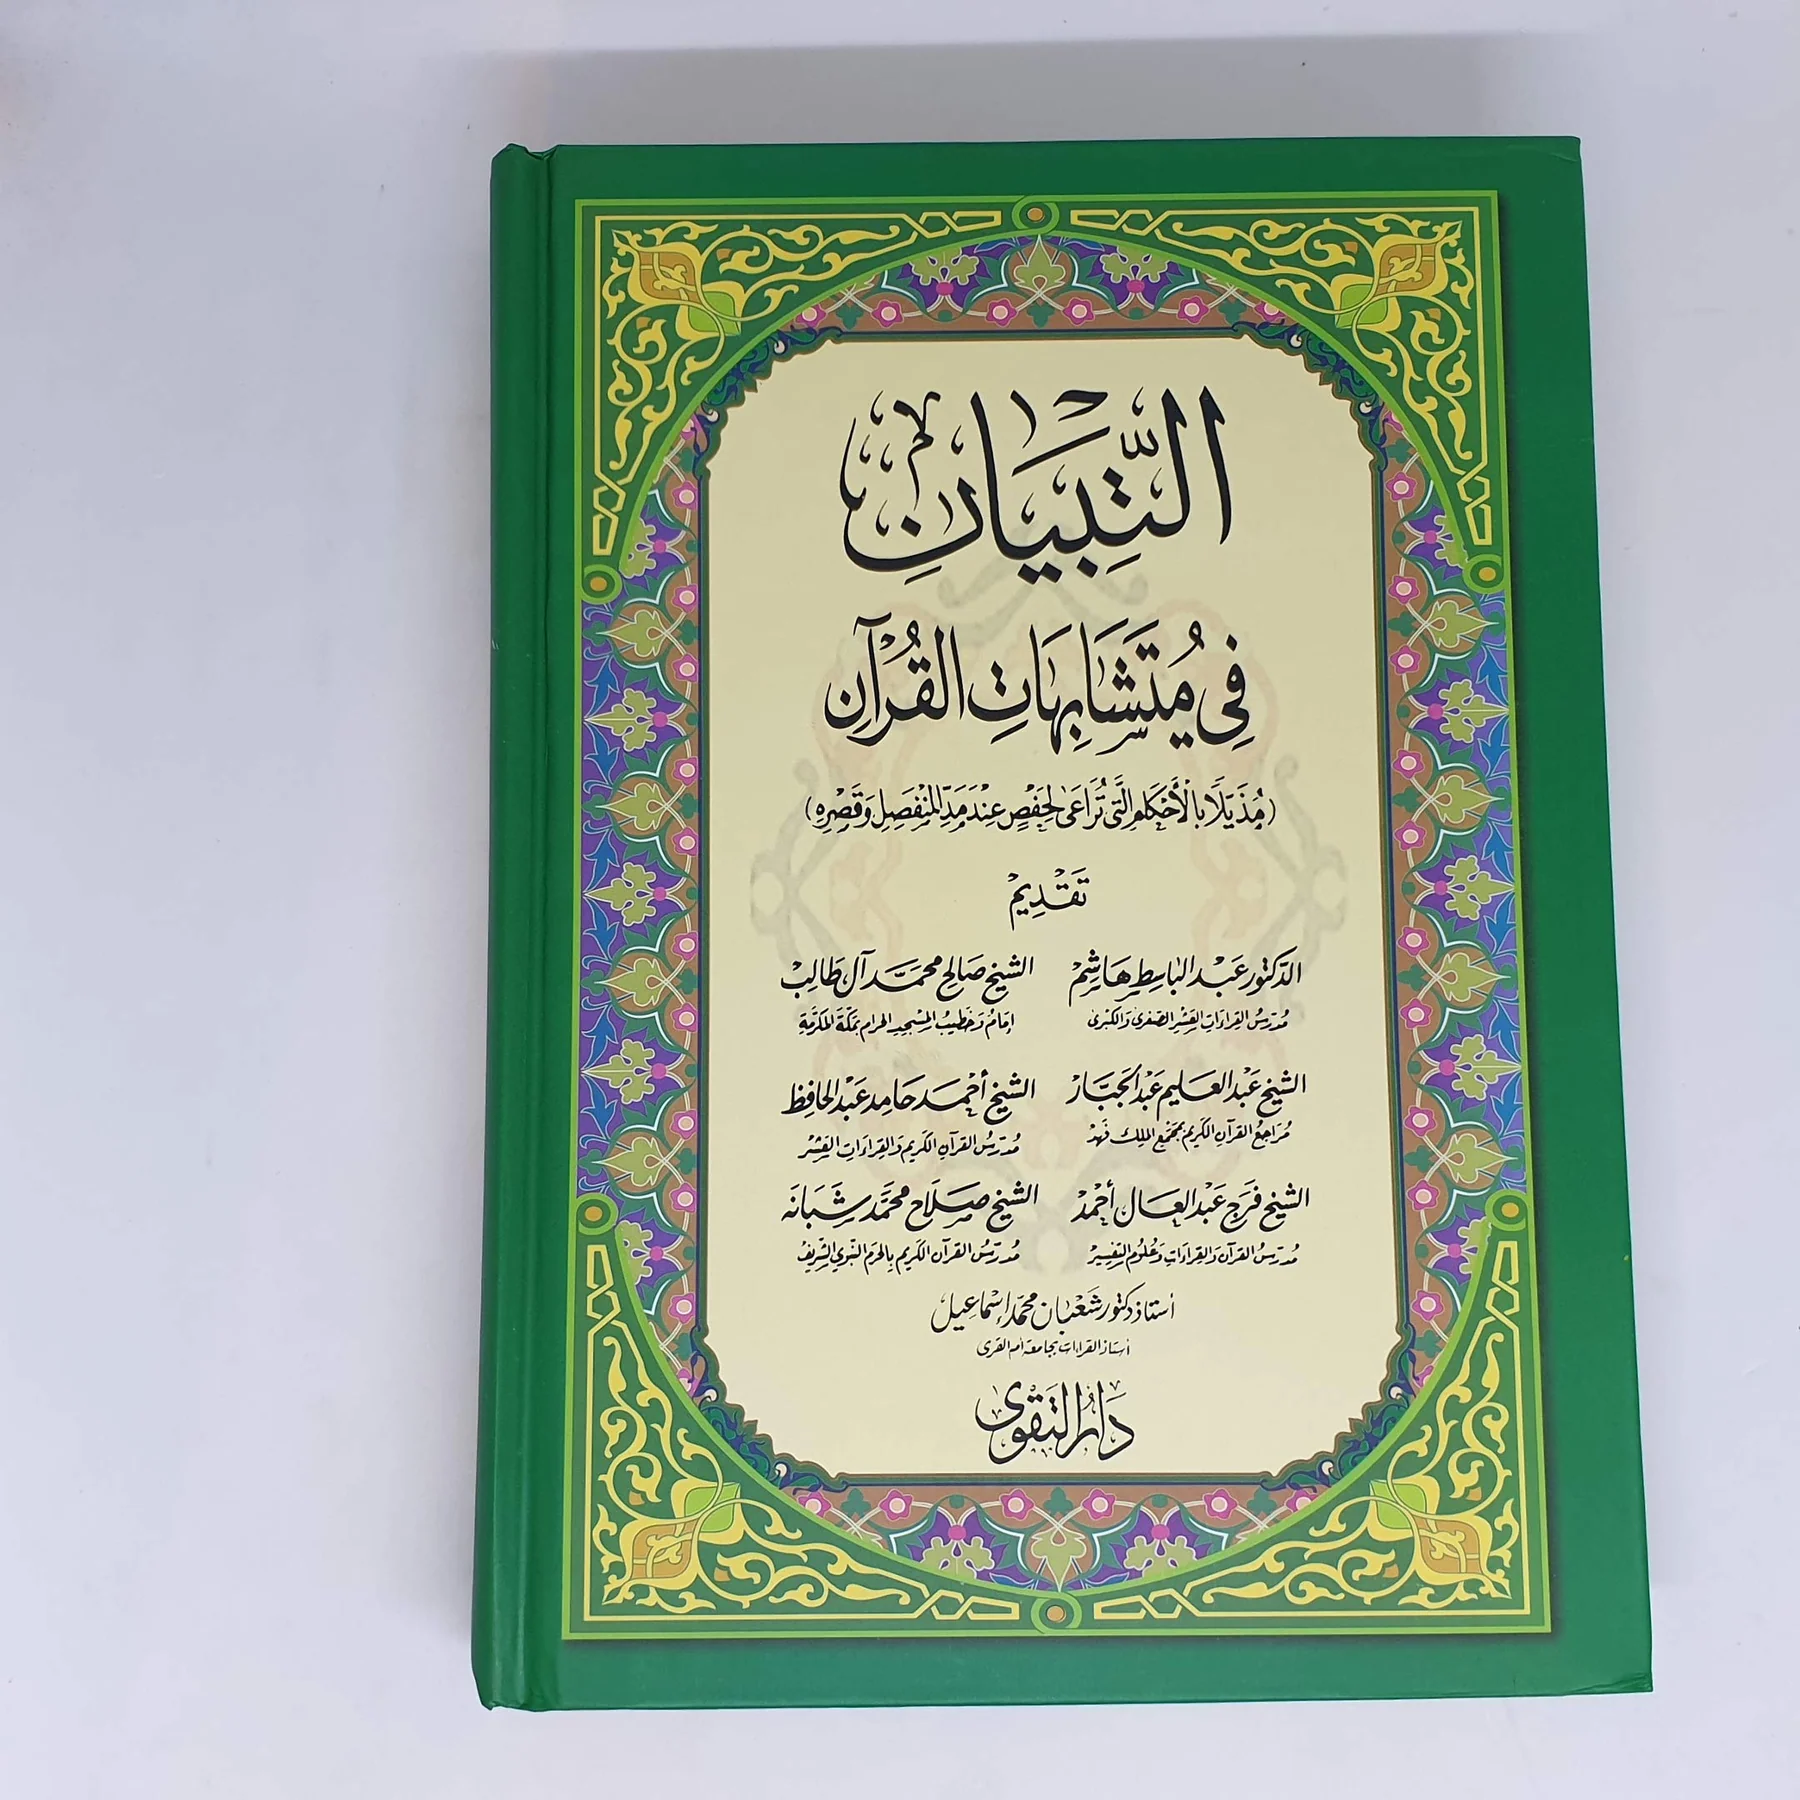 التِّبْيَانِ
فِي مُتَشَابِهَاتِ القُرْآنِ
(مُذَيَّلًا بالأَحْكَامِ الَّتِي تُرَاعَى لِحَفْصٍ عِنْدَ مَدِّ المُنْفَصِلِ وَقَصْرِهِ)
تَقْدِيمْ
الدّكتور عَبْد البَاسِط هَاشِمْ
مُدَرِّسُ القِرَاءَاتِ العَشْرِ الصّغرى وَالكُبْرى
الشيخ صَالِح محمَّد آل طَالِبْ
إمَامُ وَخَطِيبُ المَسْجِدِ الحَرام بمَكَّةَ المُكَرَّمَةِ
الشيخ عَبْد العَليم عَبْد الجَبَّارْ
مُرَاجِعُ القُرآنِ الكَرِيمِ بمَجْمَعِ الملِك فَهْدْ
الشيخ أحْمَد حَامِد عَبْد الحَافِظ
مُدَرِّسُ القُرآنِ الكَرِيمِ وَالقِرَاءَاتِ العَشْرِ
الشيخ فَرَج عَبْد العَال أحْمَدْ
مُدَرِّسُ القُرآنِ وَالقِرَاءَاتِ وَعُلُومِ التَّفْسِيرْ
الشيخ صَلَاح محمَّد شَبَانَه
مُدَرِّسُ القُرآنِ الكَرِيمِ بِالحَرَمِ النَّبَوِيِّ الشَّرِيفْ
أستاذ دكتور شَعْبَان محمَّد إسْمَاعِيل
أستاذ القراءات بجامعة أم القرى
دَارُ التَّقْوَى